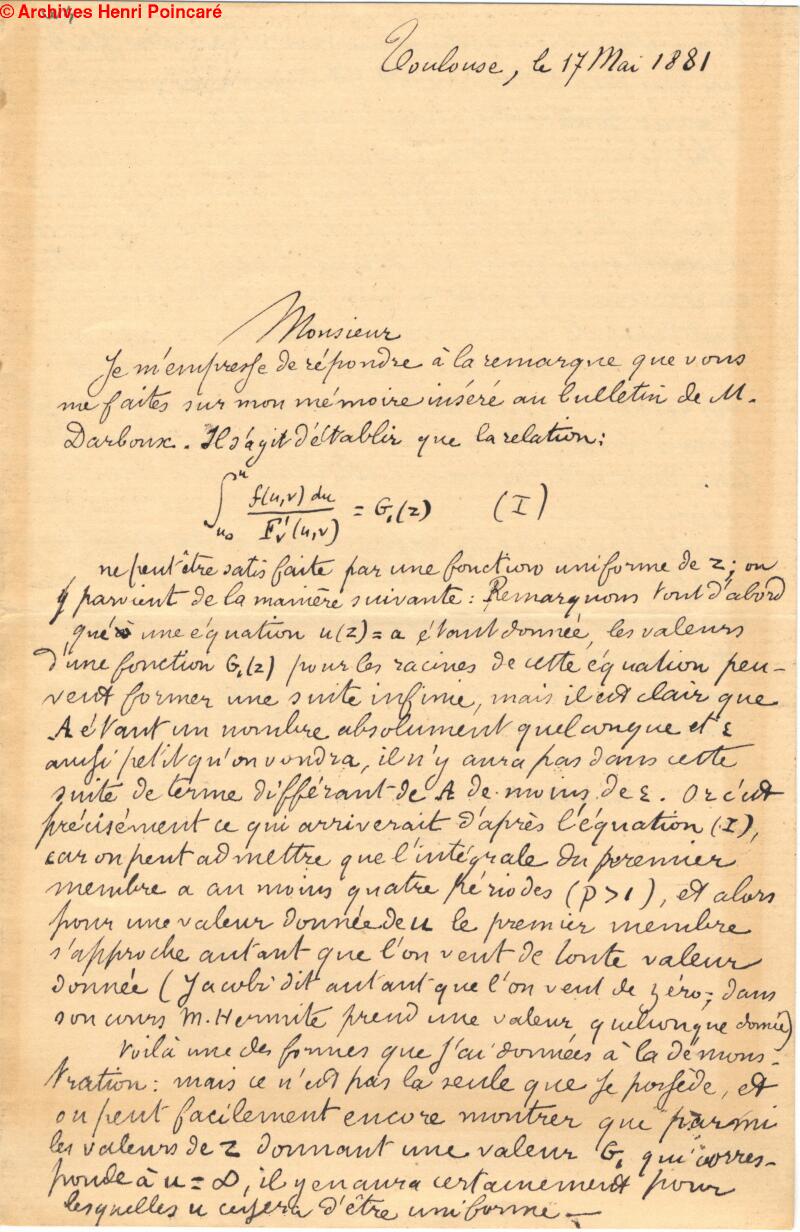 © Archives Henri Poincaré
Toulouse, le 17 Mai 1881
Monsieur
Je m'empresse de répondre à la remarque que vous
me faites sur mon mémoire inséré au bulletin de M.
Darboux. Il s'agit d'établir que la relation:
∫_{u₀}^{u} f(u,v) du / F'_v(u,v) = G₁(z) (I)
ne peut être satisfaite par une fonction uniforme de z; on
y parvient de la manière suivante: Remarquons tout d'abord
que une équation u(z) = a étant donnée, les valeurs
d'une fonction G₁(z) pour les racines de cette équation peu-
vent former une suite infinie, mais il est clair que
A étant un nombre absolument quelconque et ε
aussi petit qu'on voudra, il n'y aura pas dans cette
suite de terme différant de A de moins de ε. Or c'est
précisément ce qui arriverait d'après l'équation (I),
car on peut admettre que l'intégrale du premier
membre a au moins quatre périodes (p > 1), et alors
pour une valeur donnée de u le premier membre
s'approche autant que l'on veut de toute valeur
donnée (Jacobi dit autant que l'on veut de zéro; dans
son cours M. Hermite prend une valeur quelconque donnée)
Voilà une des formes que j'ai données à la démons-
tration: mais ce n'est pas la seule que je possède, et
on peut facilement encore montrer que parmi
les valeurs de z donnant une valeur G₁ qui corres-
ponde à u = ∞, il y en aura certainement pour
lesquelles u cessera d'être uniforme —